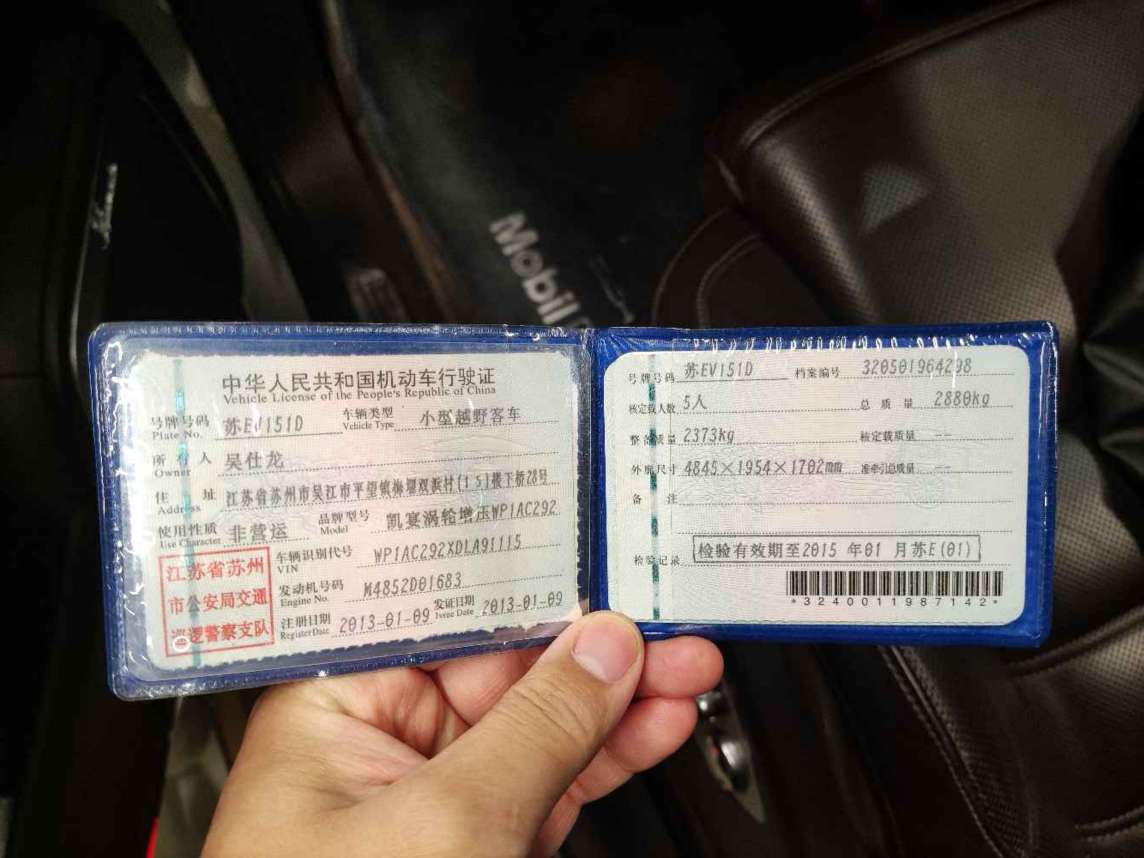 Mobil
中华人民共和国机动车行驶证
Vehicle License of the People's Republic of China
号牌号码 苏EV151D 车辆类型 小型越野客车
Plate No. Vehicle Type
所有人 吴仕龙
Owner
住址 江苏省苏州市吴江市平望镇梅堰双浜村(15)楼下桥28号
Address
使用性质 非营运 品牌型号 凯宴涡轮增压WP1AC292
Use Character Model
江苏省苏州
市公安局交通
巡逻警察支队
车辆识别代号 WP1AC292XDLA91115
VIN
发动机号码 M4852D01683
Engine No.
注册日期 2013-01-09 发证日期 2013-01-09
Register Date Issue Date
号牌号码 苏EV151D 档案编号 320501964298
核定载人数 5人 总质量 2880kg
整备质量 2373kg 核定载质量 --
外廓尺寸 4845×1954×1702mm 准牵引总质量 --
备注
检验记录 检验有效期至2015年01月苏E(01)
*3240011987142*